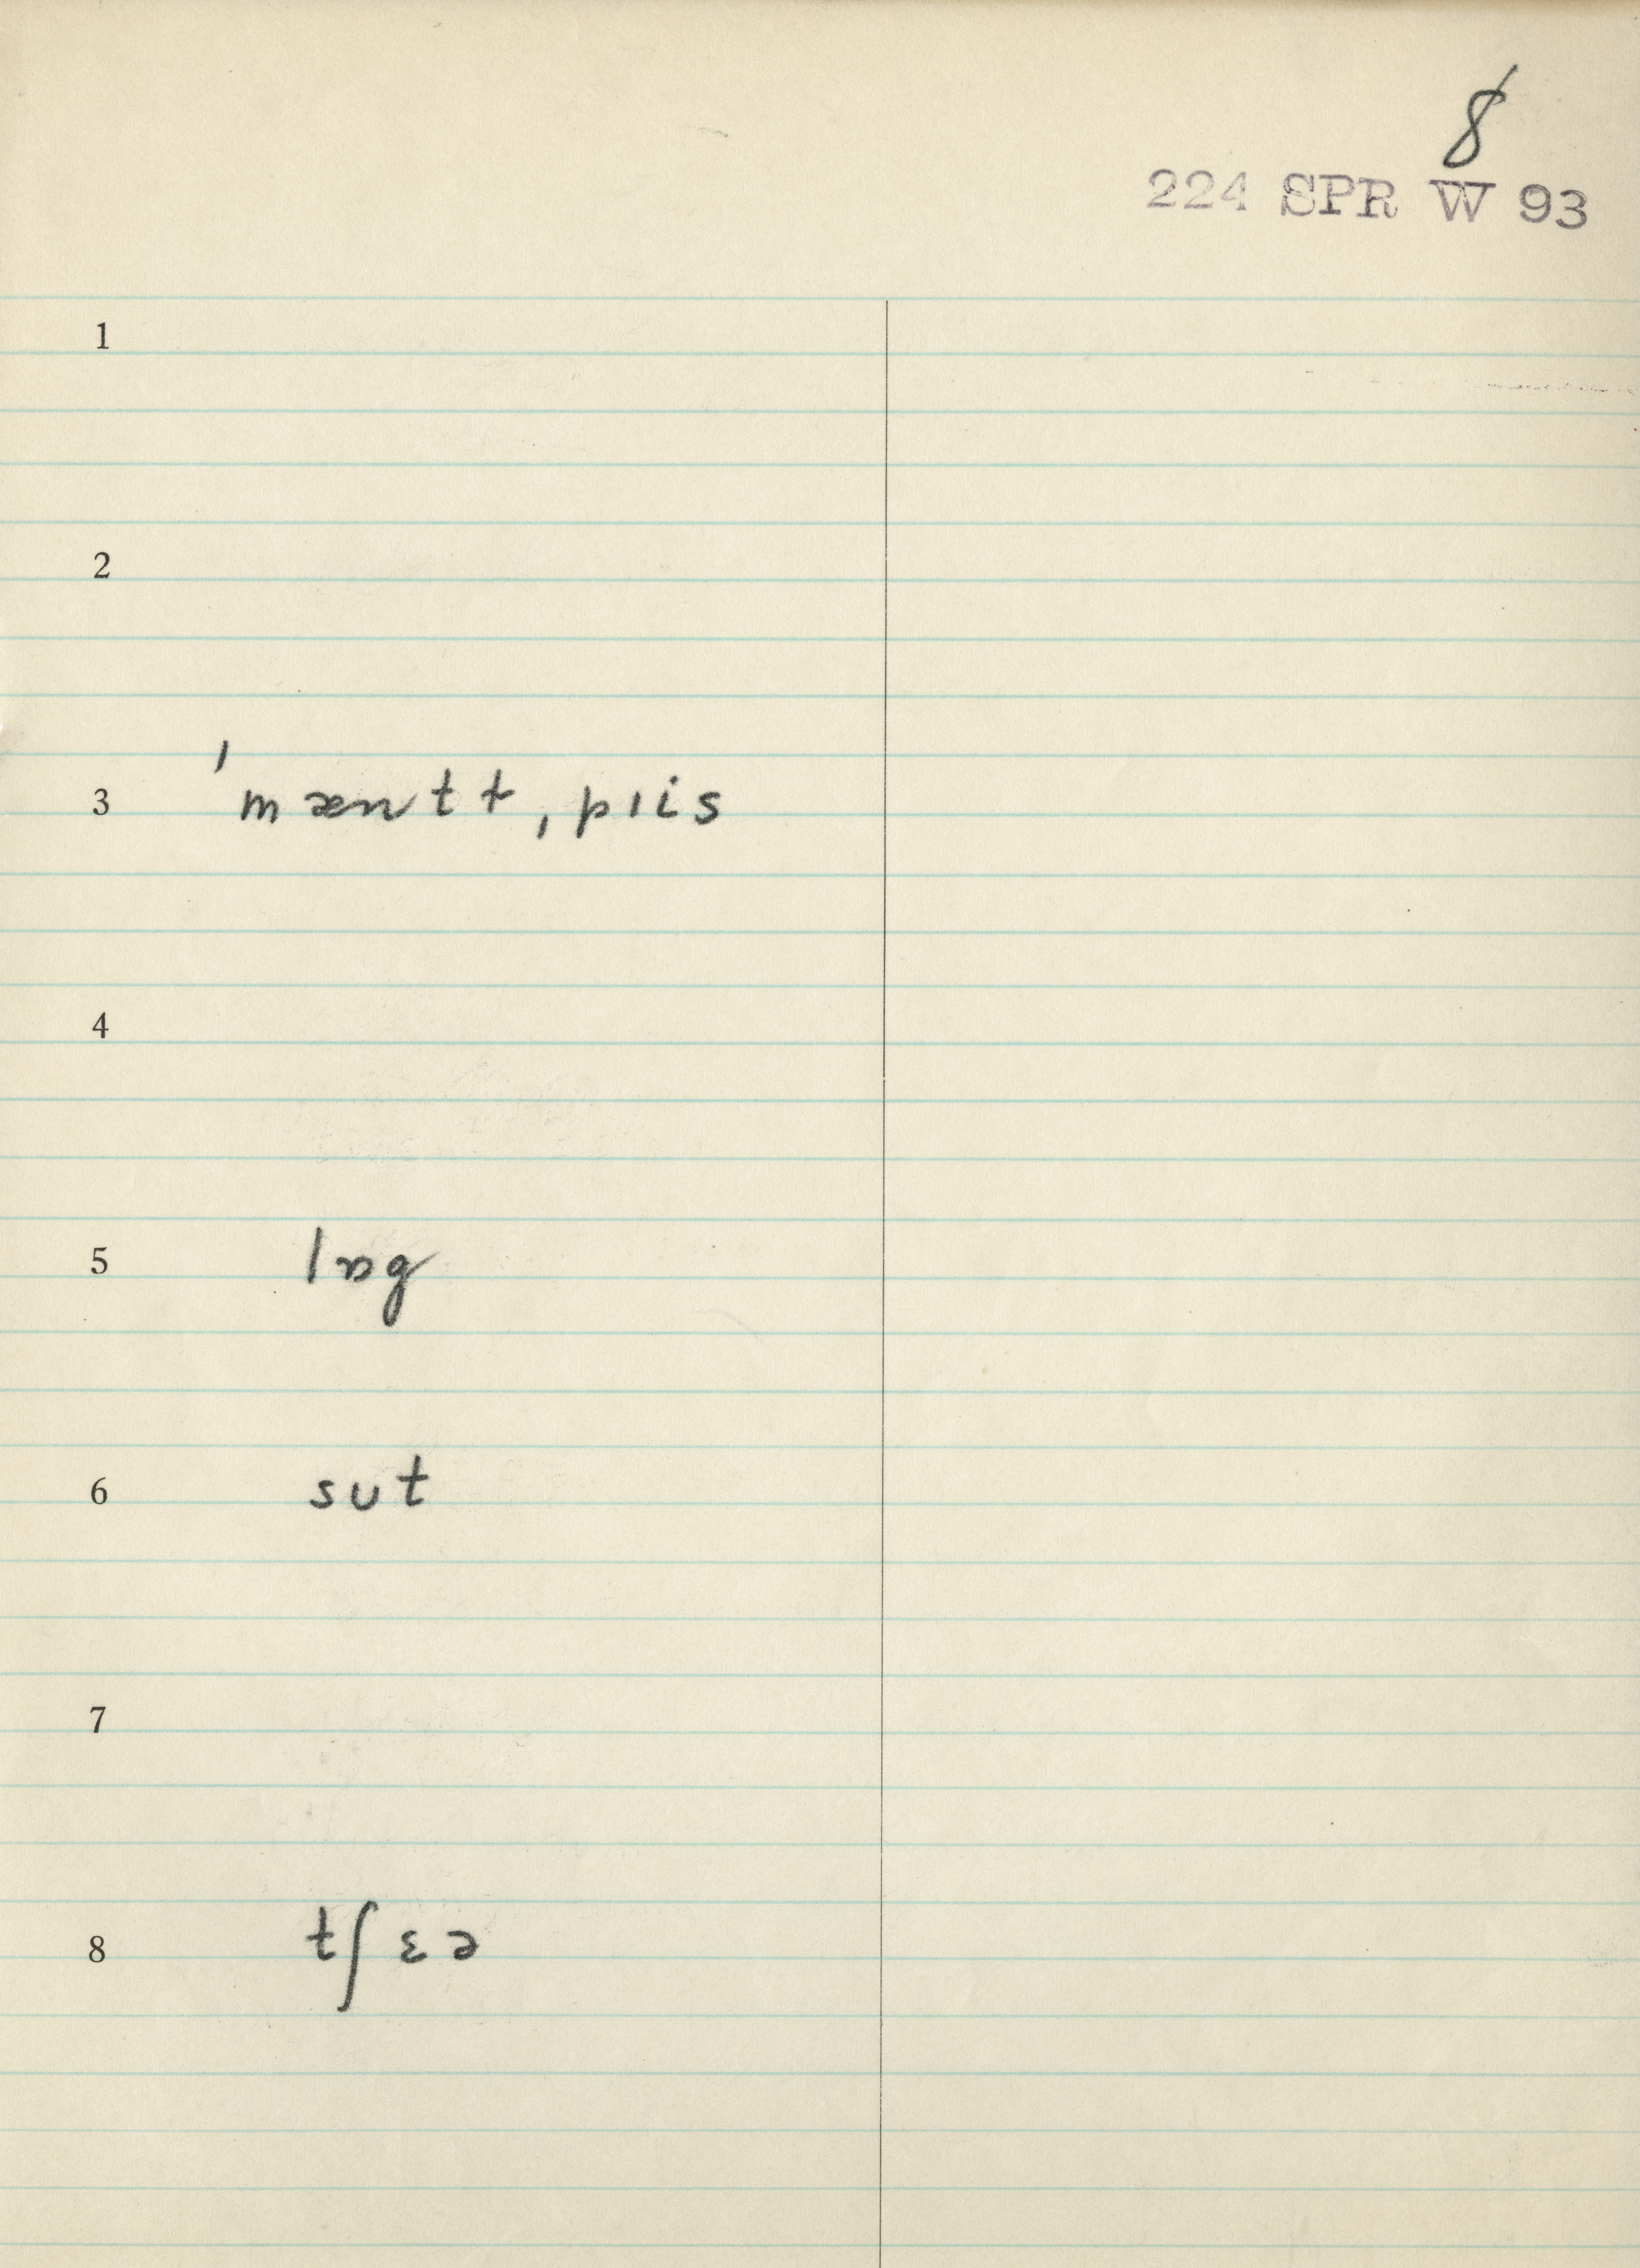 8
224 SPR W 93
1
2
3 ˈmæntɫˌpɪis
4
5 lɒg
6 sut
7
8 tʃɛə